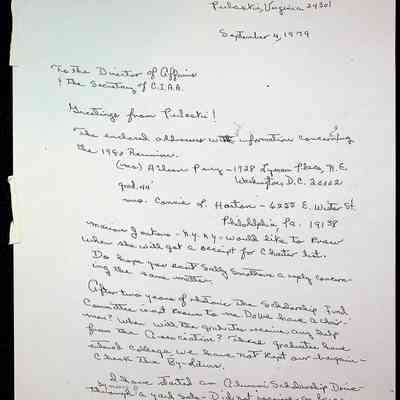 Pulaski, Virginia 24301
September 4, 1979
To the Director of Affairs
& the Secretary of C.I.A.A.
Greetings from Pulaski!
The enclosed addresses with information concerning
the 1980 Reunion.
(Mrs) Aileen Perry - 1928 Lyman Place, N.E.
grad. 44' Washington, D.C. 20002
Mrs. Connie L. Horton - 6255 E. Wister St.
Philadelphia, Pa. 19138
Marion - N.Y. N.Y. - would like to know
when she will get a receipt for Charter list.
Do hope you sent Sally Smothers a reply concern-
ing the same matter.
After two years of silence the Scholarship Fund
Committee must known to me. Do we have a chair-
man? When will the graduates receive any help
from the Association? These graduates have
entered college. We have not kept our bargain -
Check the By-Laws.
I have started an Alumni Scholarship Drive
through a yard sale - Did not